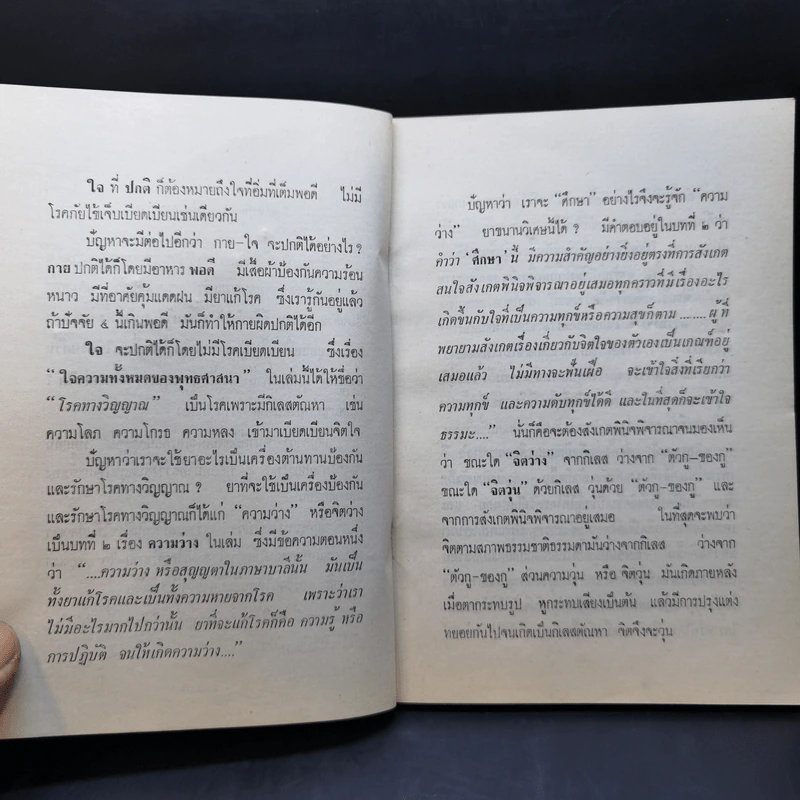 ใจ ที่ ปกติ ก็ต้องหมายถึงใจที่อิ่มที่เต็มพอดี ไม่มี
โรคภัยไข้เจ็บเบียดเบียนเช่นเดียวกัน
ปัญหาจะมีต่อไปอีกว่า กาย-ใจ จะปกติได้อย่างไร ?
กาย ปกติได้ก็โดยมีอาหาร พอดี มีเสื้อผ้าป้องกันความร้อน
หนาว มีที่อาศัยคุ้มแดดฝน มียาแก้โรค ซึ่งเรารู้กันอยู่แล้ว
ถ้าปัจจัย ๔ นี้เกินพอดี มันก็ทำให้กายผิดปกติได้อีก
ใจ จะปกติได้ก็โดยไม่มีโรคเบียดเบียน ซึ่งเรื่อง
"ใจความทั้งหมดของพุทธศาสนา" ในเล่มนี้ได้ให้ชื่อว่า
"โรคทางวิญญาณ" เป็นโรคเพราะมีกิเลสตัณหา เช่น
ความโลภ ความโกรธ ความหลง เข้ามาเบียดเบียนจิตใจ
ปัญหาว่าเราจะใช้ยาอะไรเป็นเครื่องต้านทานป้องกัน
และรักษาโรคทางวิญญาณ ? ยาที่จะใช้เป็นเครื่องป้องกัน
และรักษาโรคทางวิญญาณก็ได้แก่ "ความว่าง" หรือจิตว่าง
เป็นบทที่ ๒ เรื่อง ความว่าง ในเล่ม ซึ่งมีข้อความตอนหนึ่ง
ว่า "....ความว่าง หรือสุญญตาในภาษาบาลีนั้น มันเป็น
ทั้งยาแก้โรคและเป็นทั้งความหายจากโรค เพราะว่าเรา
ไม่มีอะไรมากไปกว่านั้น ยาที่จะแก้โรคก็คือ ความรู้ หรือ
การปฏิบัติ จนให้เกิดความว่าง...."
ปัญหาว่า เราจะ "ศึกษา" อย่างไรจึงจะรู้จัก "ความ
ว่าง" ยาขนานวิเศษนี้ได้ ? มีคำตอบอยู่ในบทที่ ๒ ว่า
คำว่า 'ศึกษา' นี้ มีความสำคัญอย่างยิ่งอยู่ตรงที่การสังเกต
สนใจสังเกตพินิจพิจารณาอยู่เสมอทุกคราวที่มีเรื่องอะไร
เกิดขึ้นกับใจที่เป็นความทุกข์หรือความสุขก็ตาม ........ ผู้ที่
พยายามสังเกตเรื่องเกี่ยวกับจิตใจของตัวเองเป็นเกณฑ์อยู่
เสมอแล้ว ไม่มีทางจะฟั่นเฝือ จะเข้าใจสิ่งที่เรียกว่า
ความทุกข์ และความดับทุกข์ได้ดี และในที่สุดก็จะเข้าใจ
ธรรมะ...." นั้นก็คือจะต้องสังเกตพินิจพิจารณาจนมองเห็น
ว่า ขณะใด "จิตว่าง" จากกิเลส ว่างจาก "ตัวกู-ของกู"
ขณะใด "จิตวุ่น" ด้วยกิเลส วุ่นด้วย "ตัวกู-ของกู" และ
จากการสังเกตพินิจพิจารณาอยู่เสมอ ในที่สุดจะพบว่า
จิตตามสภาพธรรมชาติธรรมดามันว่างจากกิเลส ว่างจาก
"ตัวกู-ของกู" ส่วนความวุ่น หรือ จิตวุ่น มันเกิดภายหลัง
เมื่อตากระทบรูป หูกระทบเสียงเป็นต้น แล้วมีการปรุงแต่ง
ทยอยกันไปจนเกิดเป็นกิเลสตัณหา จิตจึงจะวุ่น